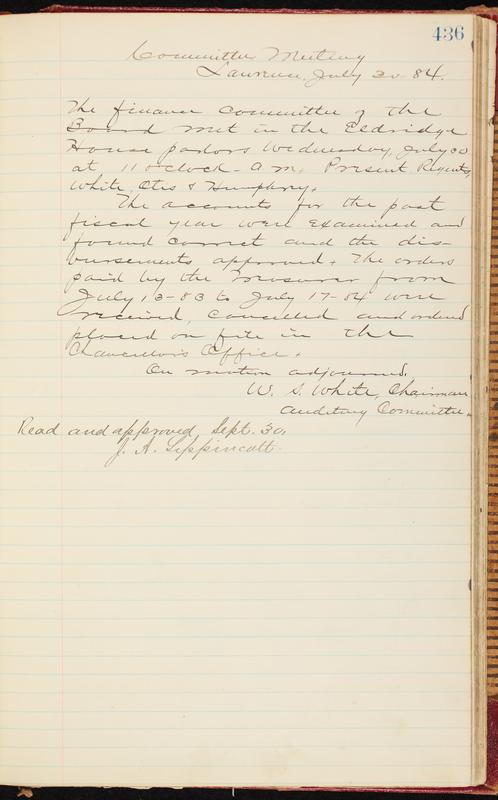 436
Committee Meeting
Lawrence, July 30 84.
The finance committee of the
Board met in the Eldridge
House parlors Wednesday, July 30
at 11 o'clock a.m. Present Regents,
White, Otis & Humphry.
The accounts for the past
fiscal year were examined and
found correct and the dis-
bursements approved. The orders
paid by the Treasurer from
July 13-83 to July 17-84 were
received, cancelled and ordered
placed on file in the
Chancellor's Office.
On motion adjourned.
W. S. White, Chairman
Auditing Committee.
Read and approved, Sept. 30,
J. A. Lippincott